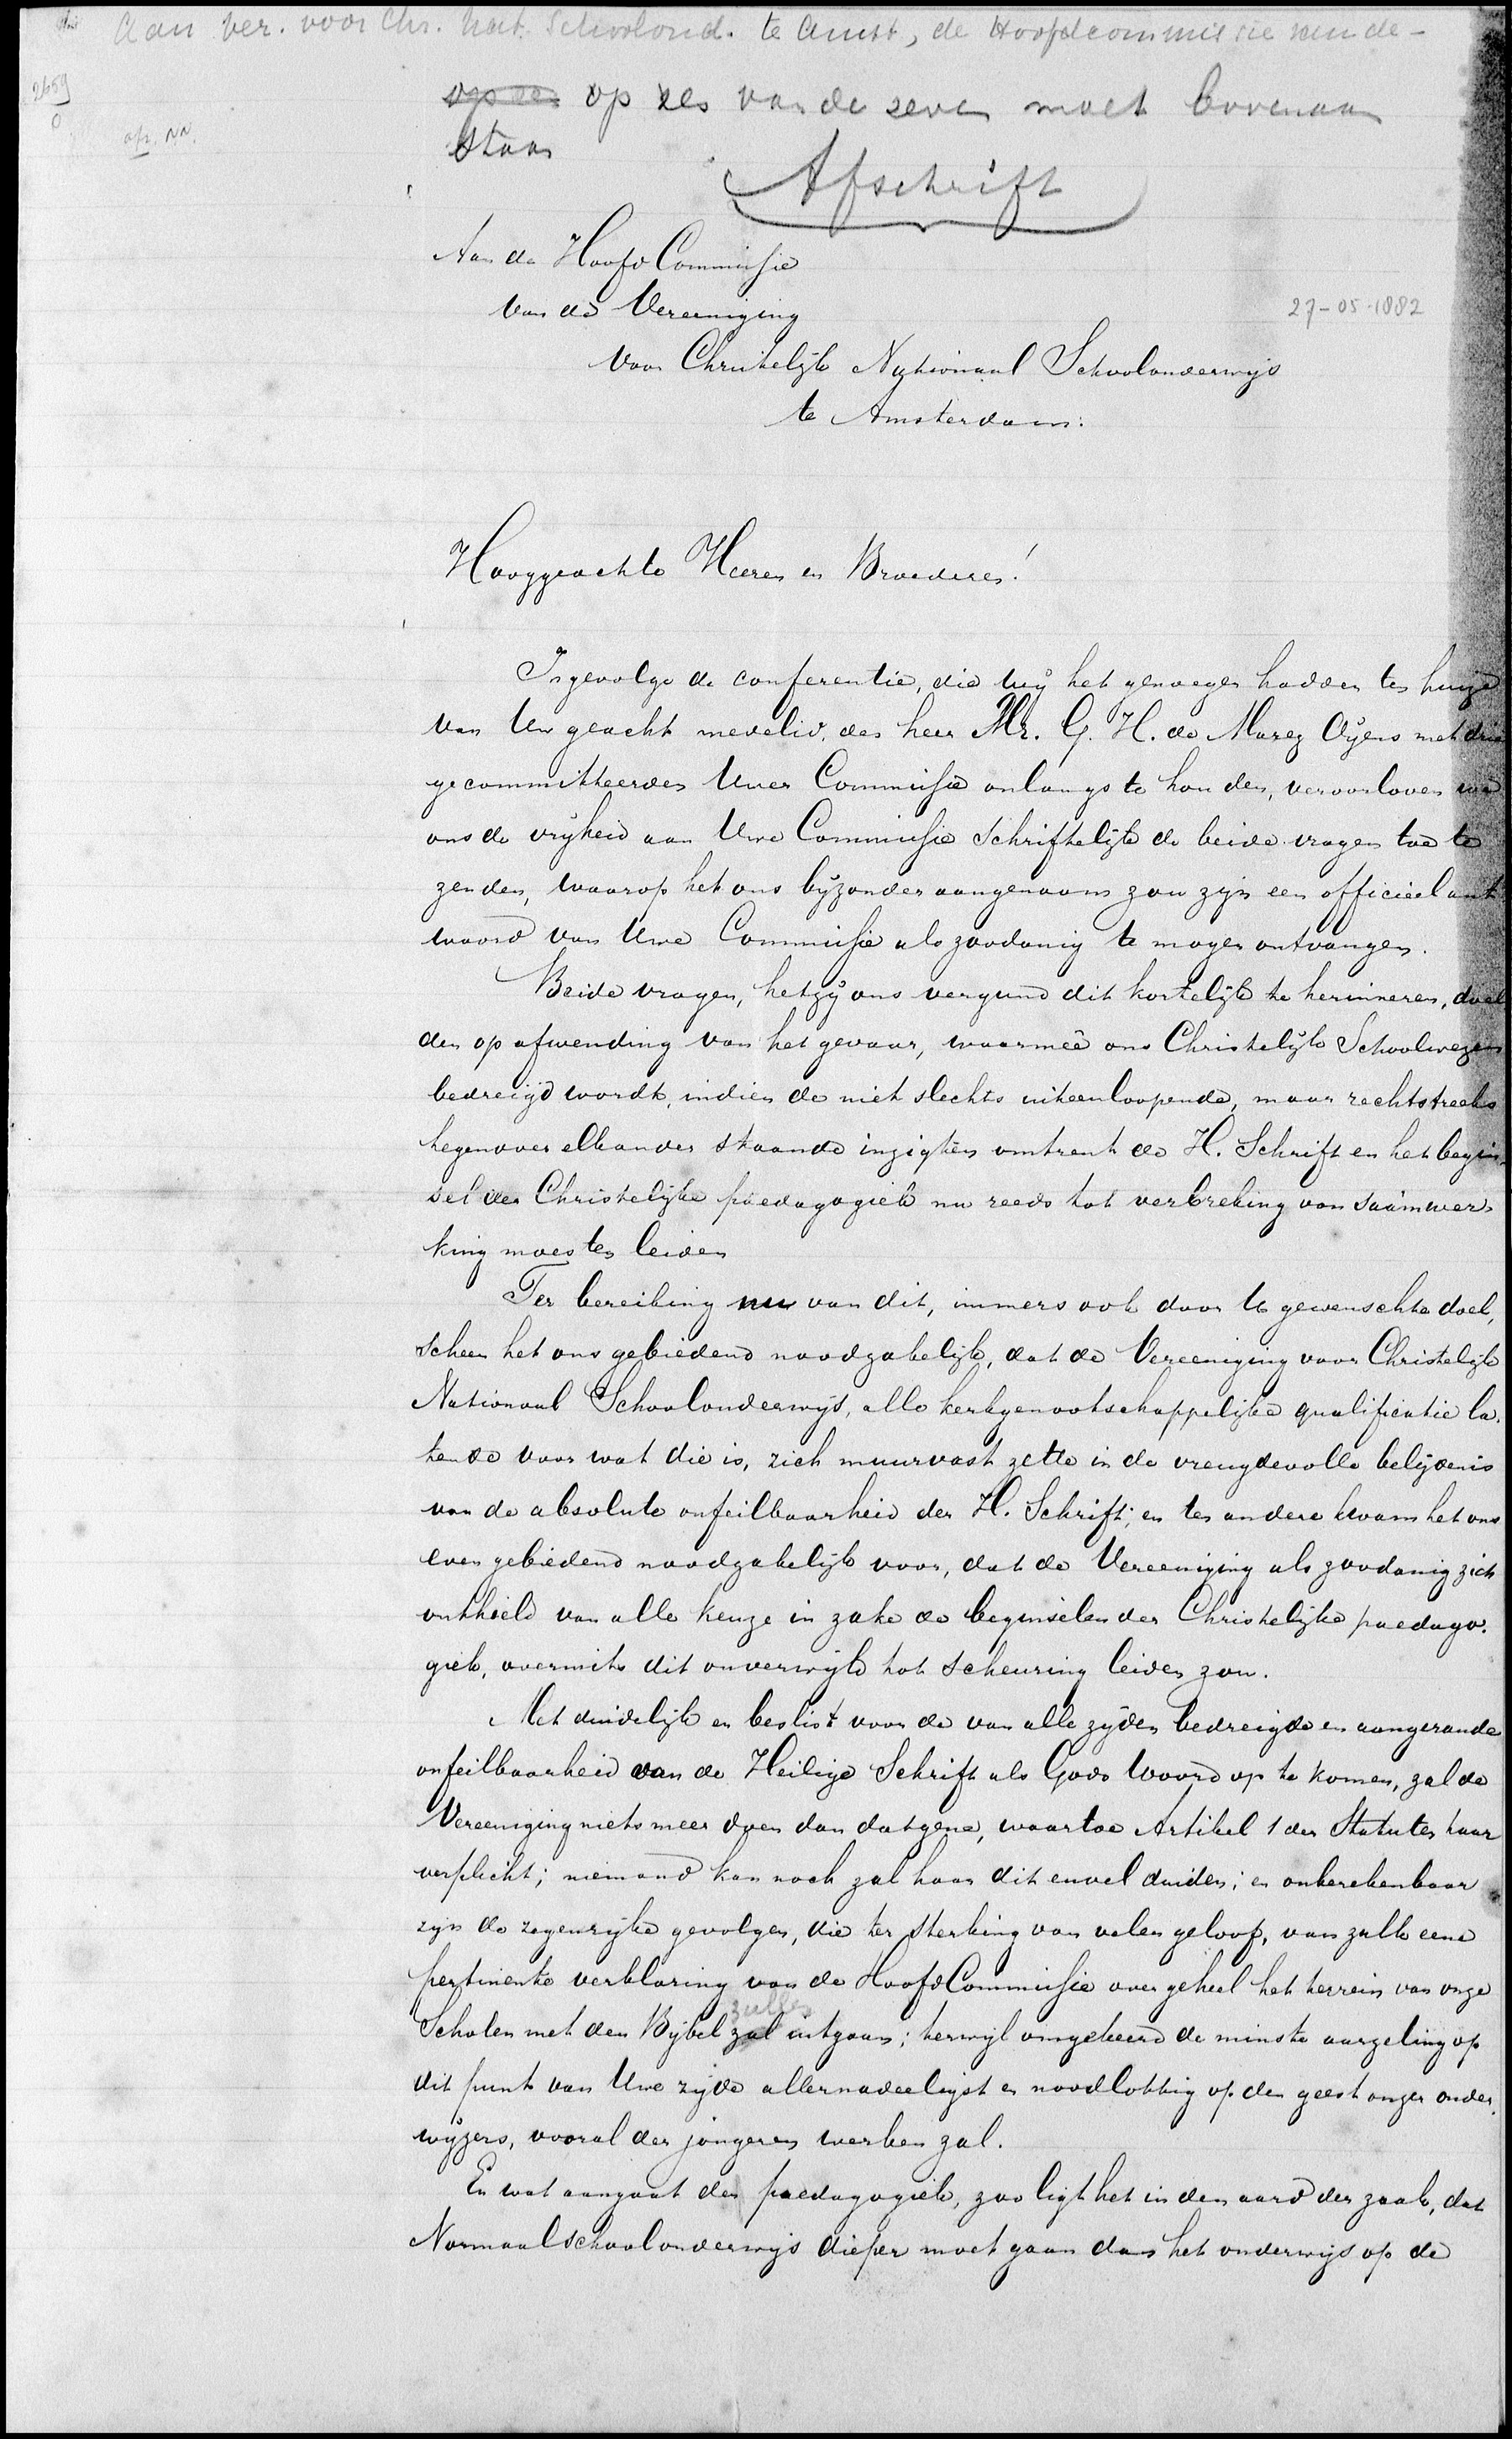 Aan ver. voor Chr. Nat. Schoolond. te Amst, de Hoofdcommissie
2659
0
afz. NN.
op zes van de zeven moet bovenaan
staan
Afschrift
Aan de HoofdCommissie
van de Vereeniging
27-05-1882
voor Christelijk Nationaal Schoolonderwijs
te Amsterdam.
Hooggeachte Heeren en Broederen!
Ingevolge de conferentie, die wij het genoegen hadden ten huize
van Uw geacht medelid, den heer Mr. G. H. de Marez Oyens met drie
gecommitteerden Uwer Commissie onlangs te houden, veroorloven we
ons de vrijheid aan Uwe Commissie schriftelijk de beide vragen toe te
zenden, waarop het ons bijzonder aangenaam zou zijn een officieel ant
woord van Uwe Commissie als zoodanig te mogen ontvangen.
Beide vragen, hetzij ons vergund dit kortelijk te herinneren, doel
den op afwending van het gevaar, waarmeê ons Christelijk Schoolwezen
bedreigd wordt, indien de niet slechts uiteenloopende, maar rechtstreeks
tegenover elkander staande inzigten omtrent de H. Schrift en het begin-
sel der Christelijke paedagogiek nu reeds tot verbreking van saamwer-
king moesten leiden
Ter bereiking nu van dit, immers ook door U gewenschte doel,
scheen het ons gebiedend noodzakelijk, dat de Vereeniging voor Christelijk
Nationaal Schoolonderwijs, alle kerkgenootschappelijke qualificatie la-
tende voor wat die is, zich muurvast zette in de vreugdevolle belijdenis
van de absolute onfeilbaarheid der H. Schrift; en ten andere kwam het ons
even gebiedend noodzakelijk voor, dat de Vereeniging als zoodanig zich
onthield van alle keuze in zake de beginselen der Christelijke paedago-
giek, overmits dit onverwijld tot scheuring leiden zou.
Met duidelijk en beslist voor de van alle zijden bedreigde en aangerande
onfeilbaarheid van de Heilige Schrift als Gods Woord op te komen, zal de
Vereeniging niets meer doen dan datgene, waartoe Artikel 1 der Statuten haar
verplicht; niemand kan noch zal haar dit euvel duiden; en onberekenbaar
zijn de zegenrijke gevolgen, die ter sterking van veler geloof, van zulk eene
pertinente verklaring van de HoofdCommissie over geheel het terrein van onze
zullen
Scholen met den Bijbel zal uitgaan; terwijl omgekeerd de minste aarzeling op
dit punt van Uwe zijde allernadeeligst en noodlottig op den geest onzer onder-
wijzers, vooral der jongeren werken zal.
En wat aangaat den paedagogiek, zoo ligt het in den aard der zaak, dat
Normaalschoolonderwijs dieper moet gaan dan het onderwijs op de